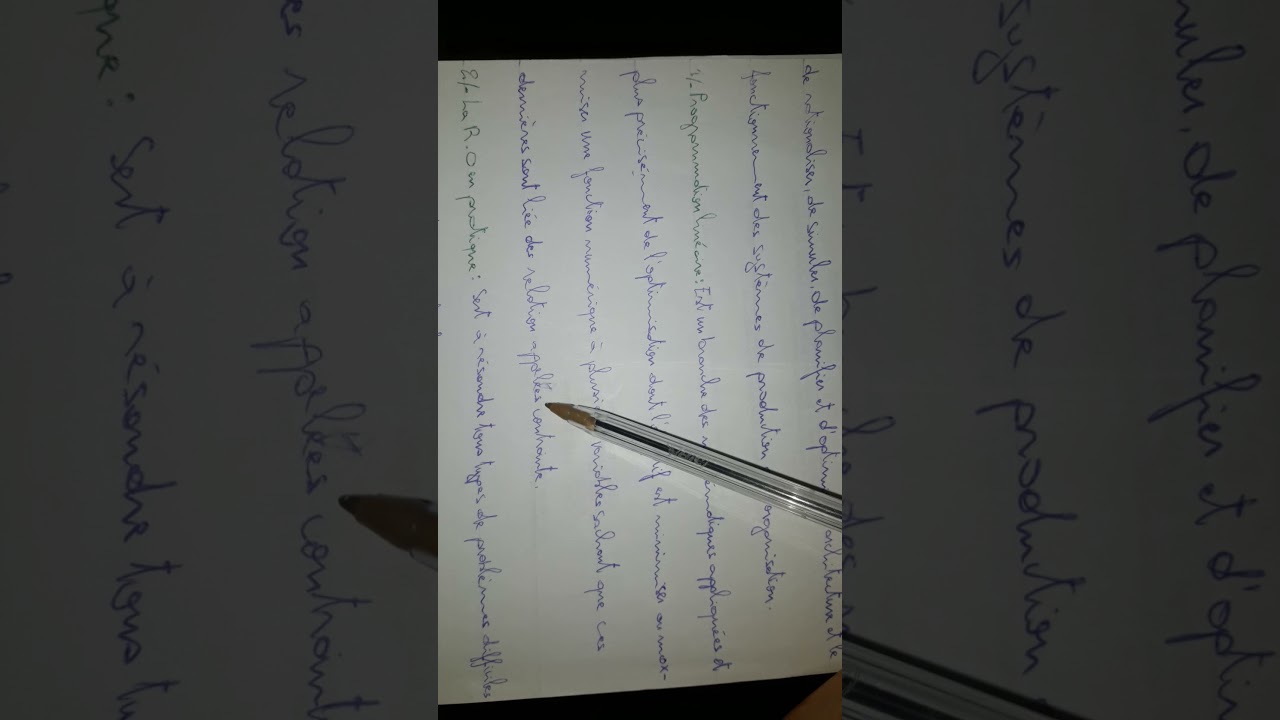 de rationaliser, de simuler, de planifier et d'optim architecture et le
fonctionnement des systèmes de production organisation.
1/- Programmation linéaire: Est un branche des mathématiques appliquées et
plus précisément de l'optimisation dont l' if est minimiser ou max-
miser une fonction numérique à plusi variables sachant que ces
dernières sont liée des relation appelées contrainte.
2/- La R.O en pratique: Sert à résoudre tous types de problèmes difficiles